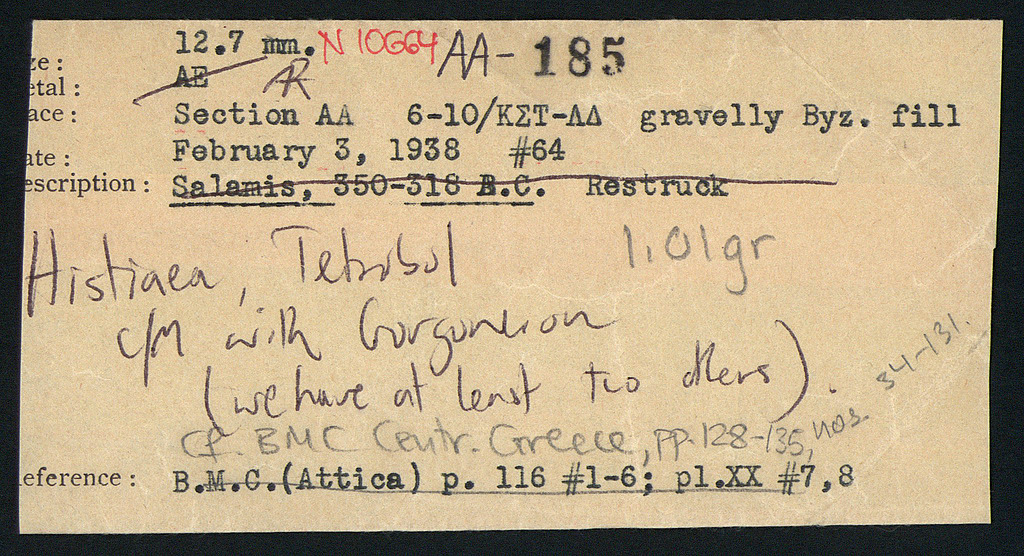 12.7 mm. N 10664 AA- 185
ze:
etal: AE AR
ace: Section AA 6-10/ΚΣΤ-ΛΔ gravelly Byz. fill
ate: February 3, 1938 #64
escription: Salamis, 350-318 B.C. Restruck
Histiaea, Tetrobol 1.01gr
c/m with Gorgoneion
(we have at least two others).
cf. BMC Centr. Greece, pp. 128-135, nos. 34-131.
eference: B.M.C.(Attica) p. 116 #1-6; pl.XX #7,8